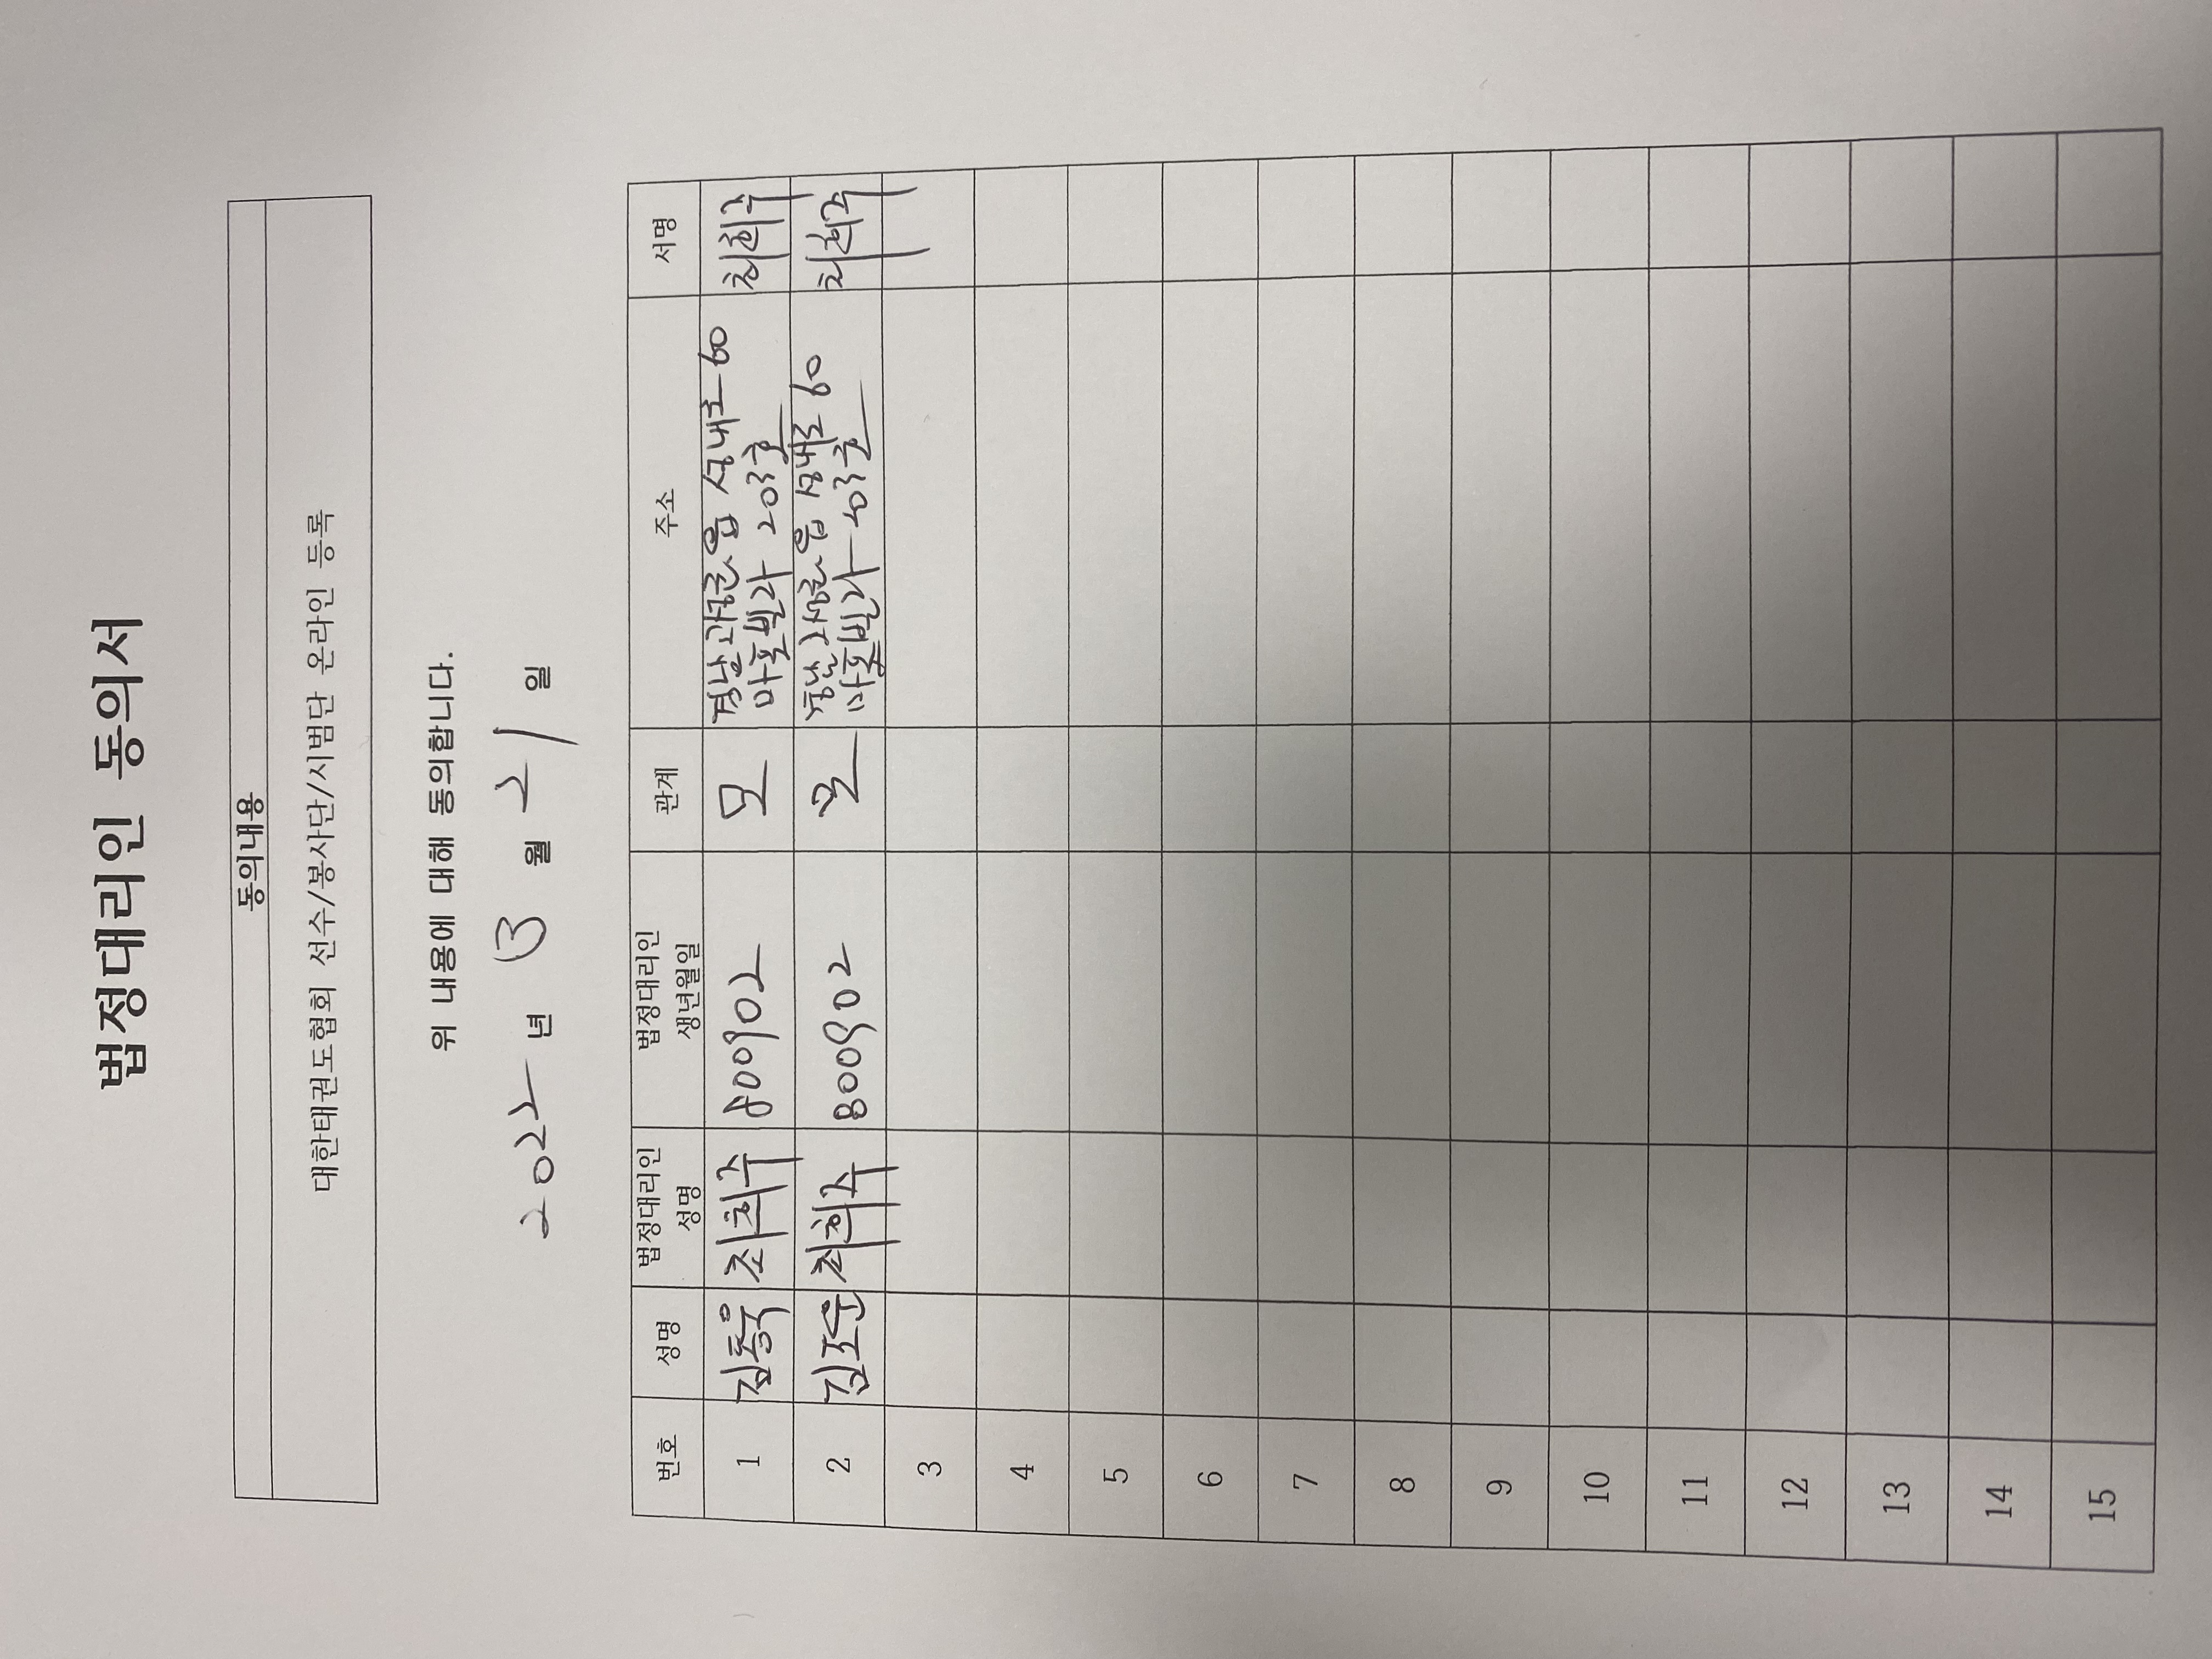 법정대리인 동의서
동의내용
대한태권도협회 선수/봉사단/시범단 온라인 등록
위 내용에 대해 동의합니다.
2022 년 3 월 21 일
번호 성명 법정대리인 성명 법정대리인 생년월일 관계 주소 서명
1 김동욱 최희주 800902 모 경남 고성군 고성읍 성내로 60
마포빌라 203호 최희주
2 최희주 800902 모 성내로 60
마포빌라 203호 최희주
3
4
5
6
7
8
9
10
11
12
13
14
15